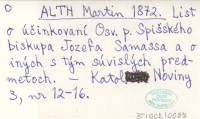 O
ALTH Martin 1872. List
o účinkovaní Osv. p. Spišského
biskupa Jozefa Samassa a o
iných s tým súvislých pred-
metoch. — Katol. Noviny
3, nr 12-16.